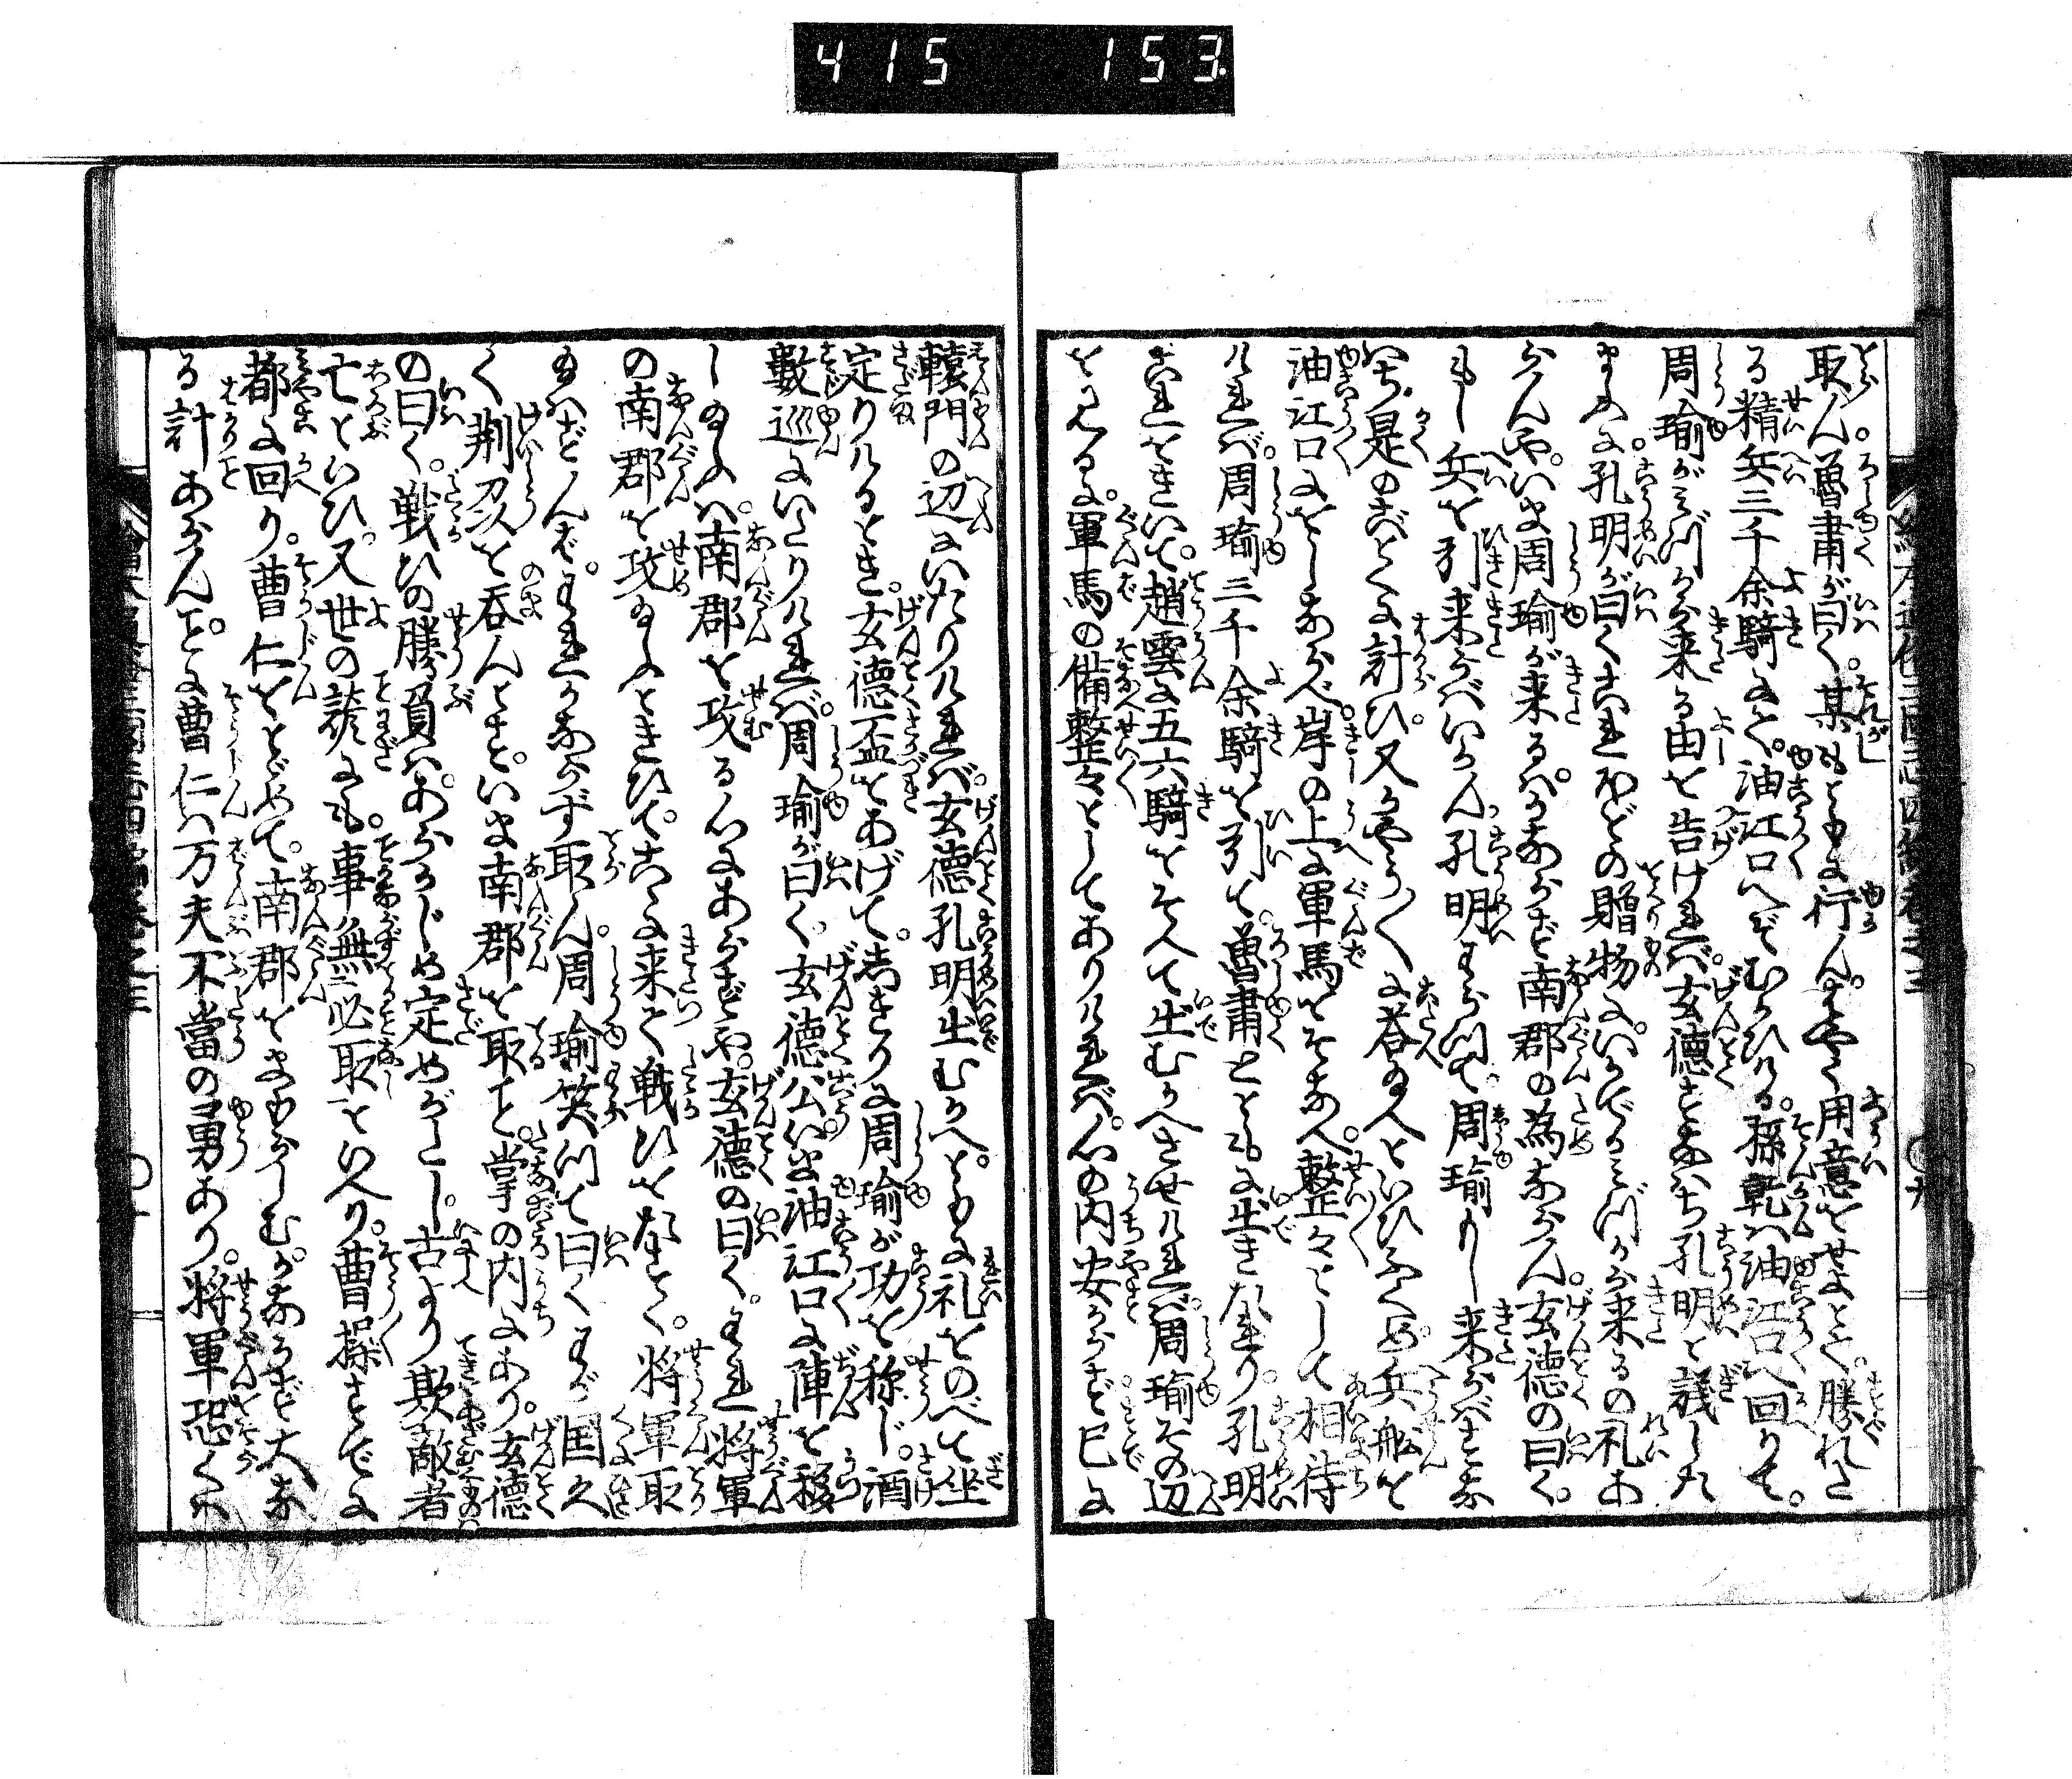 415 153
取ん。魯粛が曰く。某もともに行ん。はやく用意をせよとて。勝れた
る精兵三千余騎にて。油江口へぞむかひける。孫乾ハ油江口へ回りて。
周瑜がみづから来る由を告けれバ。玄徳すなハち孔明と議し玉
ふに。孔明が曰くこれほどの贈物に。いかでかみづから来るの礼あ
らんや。いま周瑜が来るハ。かならず南郡の為ならん。玄徳の曰く。
もし兵を引来らバいかん。孔明わらつて。周瑜もし来らバすな
ハち是のごとくに計ひ。又かやう〳〵に荅玉へといひふくめ。兵舩を
油江口にをしならべ。岸の上に軍馬をそなへ。整々として相待
けれバ。周瑜三千余騎を引て。魯粛とともに出きたれり。孔明
これをきいて。趙雲に五六騎をそへて出むかへさせけれバ。周瑜その辺
をみるに。軍馬の備整々としてありけれバ。心の内安からず已に
轅門の辺にいたりけれバ。玄徳孔明出むかへ。ともに礼をのべて坐
定りけるとき。玄徳盃をあげて。しきりに周瑜が功を称じ。酒
數巡にいたりけれバ。周瑜が曰く。玄徳公いま油江口に陣を移
し玉ふハ。南郡を攻る心にあらずや。玄徳の曰く。われ将軍
の南郡を攻玉ふときひて。こゝに来て戦ひをたすく。将軍取
玉ハずんバ。われかならず取ん。周瑜笑つて曰くわが国久
く荆州を呑んとす。いま南郡を取こと。掌の内にあり。玄徳
の曰く。戦ひの勝負ハ。あらかじめ定めがたし。古より欺敵者
亡といひ。又世の諺にも。事無必取といへり。曹操すでに
都に回り。曹仁をとゞめて。南郡をまもらしむ。かならず大な
る計あらん。ことに曹仁ハ万夫不當の勇あり。将軍恐くハ